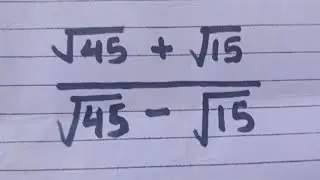 √45 + √15
√45 - √15